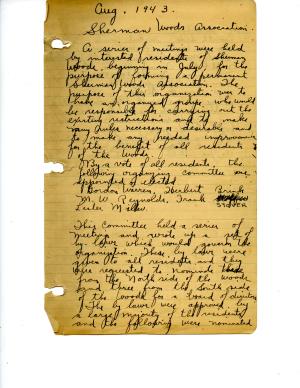 Aug. 1943.
Sherman Woods Association.
A series of meetings were held
by interested residents of Sherman
Woods beginning in July, for the
purpose of forming a permanent
Sherman Woods Association. The
purpose of this organization was to
have an organized group who would
be responsible for carrying out the
existing restrictions and to make
any rules necessary or desirable and
to make any needed improvements
for the benefit of all residents
of the woods.
By a vote of all residents, the
following organizing committee was
appointed or elected
Gordon Warren, Herbert
M. W. Reynolds, Frank STOVER
Lester
This Committee held a series
meetings and wrote up a set of
by-laws which would govern the
organization. These by laws were
given to all residents and they
were requested to nominate three
from the North side of the woods
and three from the South side
of the woods for a board of directors
The by laws were approved by
a large majority of the residents
and the following were nominated